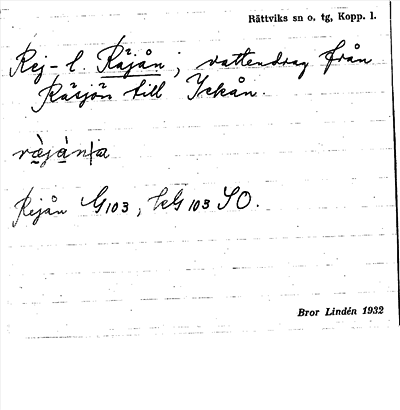 Rättviks sn o. tg, Kopp. l.
Rej- l. Räjån; vattendrag från
Räsjön till Ickån.
ræ̀jàn|a
Rejån G 103, kG 103 SO.
Bror Lindén 1932